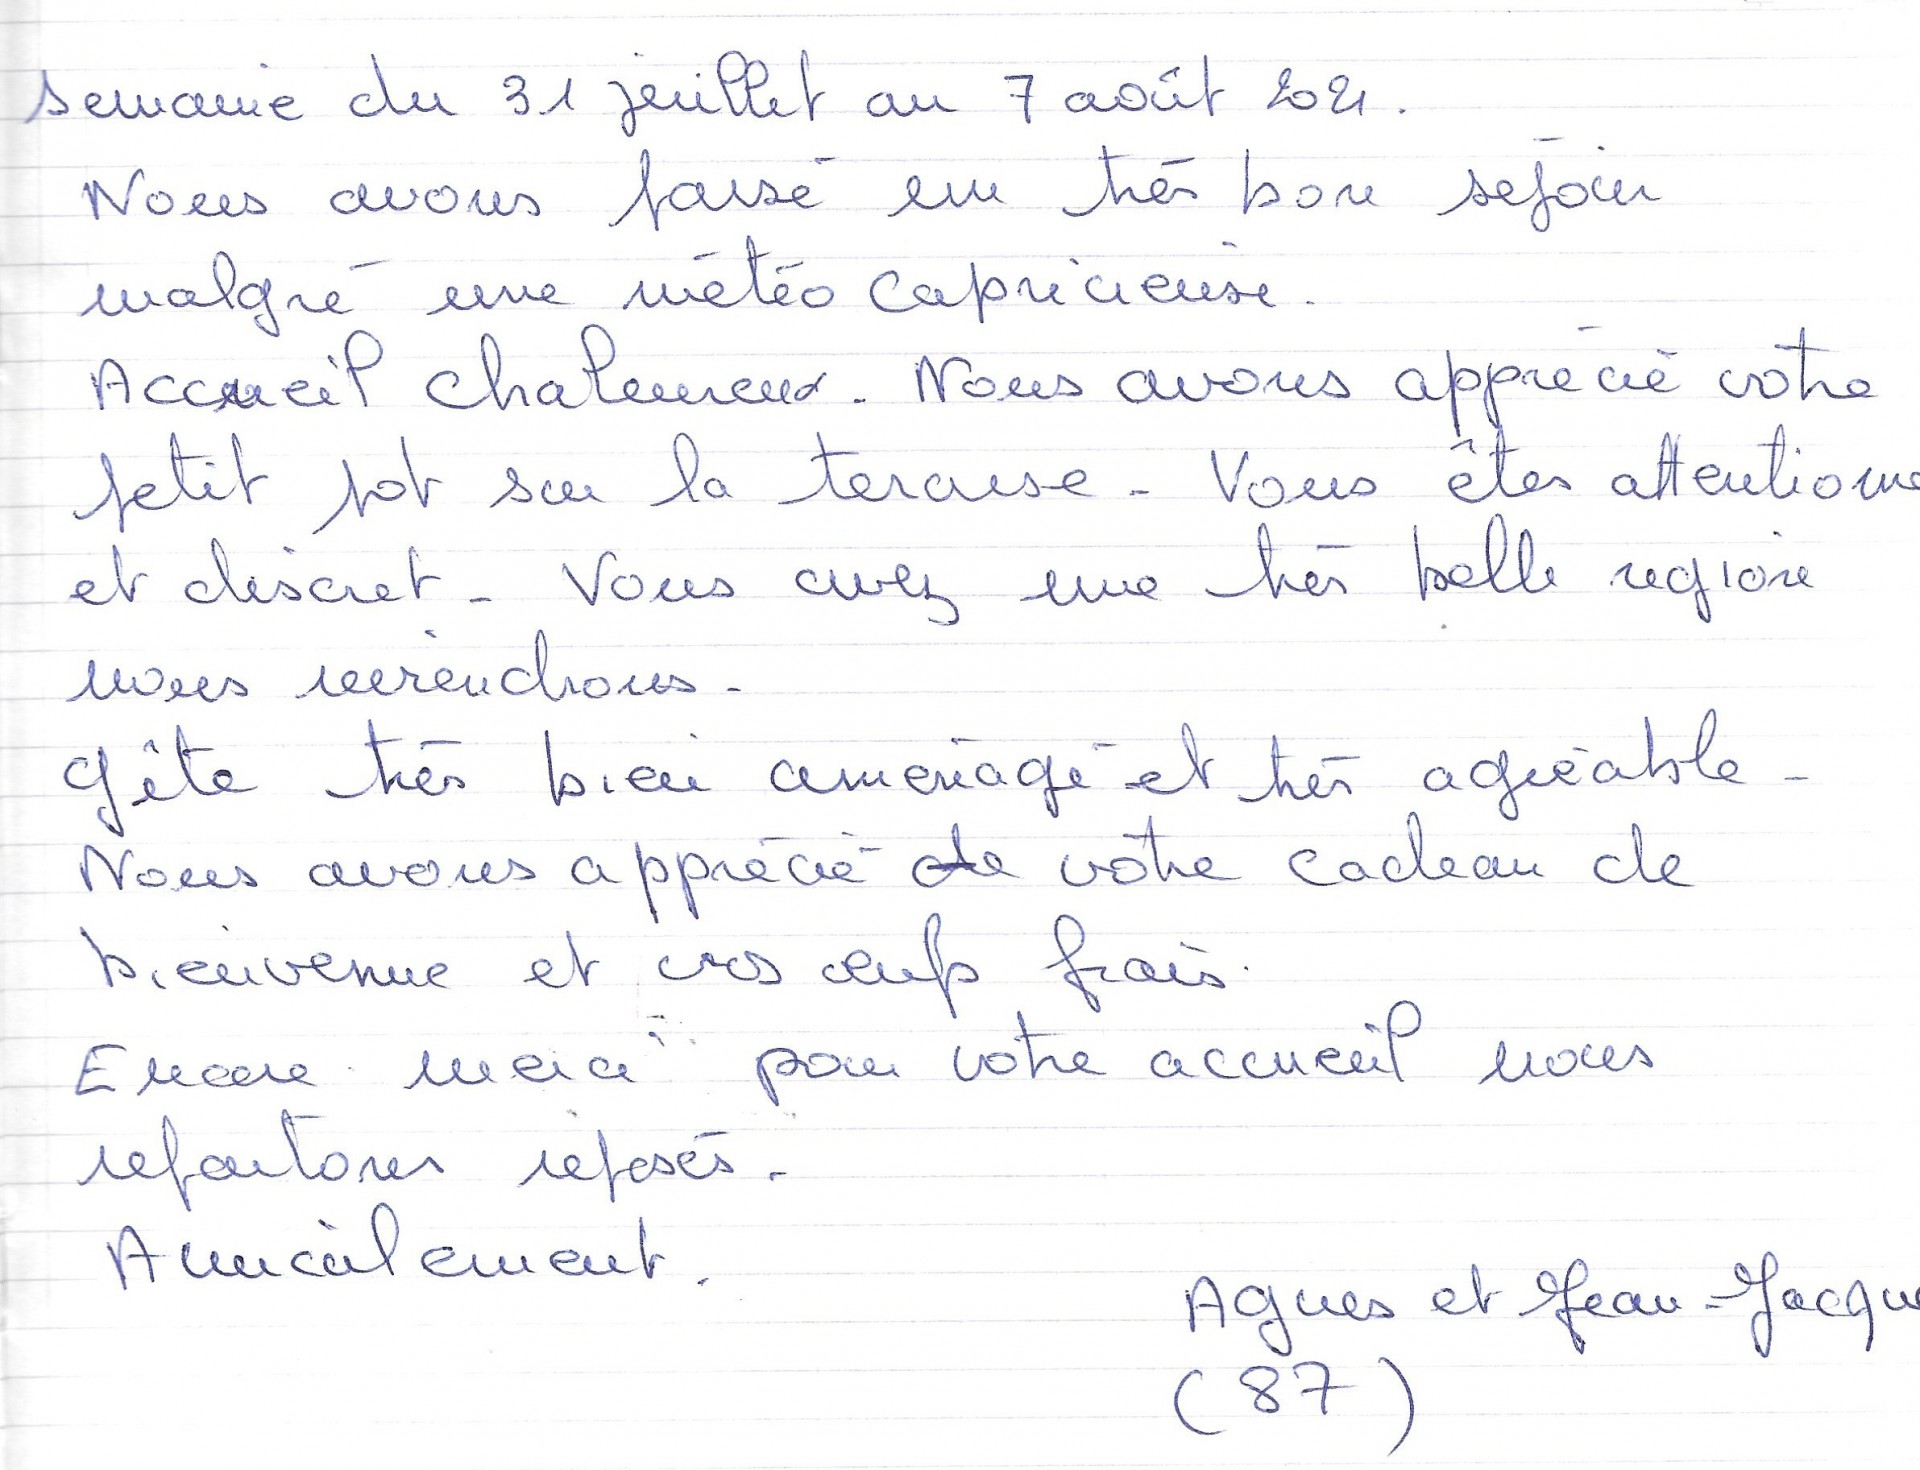 semaine du 31 juillet au 7 août 2021.
Nous avons passé un très bon séjour
malgré une météo capricieuse.
Accueil chaleureux. Nous avons apprécié votre
petit pot sur la terasse - Vous êtes attentionné
et discret - Vous avez une très belle région
nous reviendrons -
gîte très bien aménagé et très agréable -
Nous avons apprécié de votre cadeau de
bienvenue et vos oeufs frais.
Encore merci pour votre accueil nous
repartons reposés.
Amicalement.
Agnes et Jean-Jacque
(87)